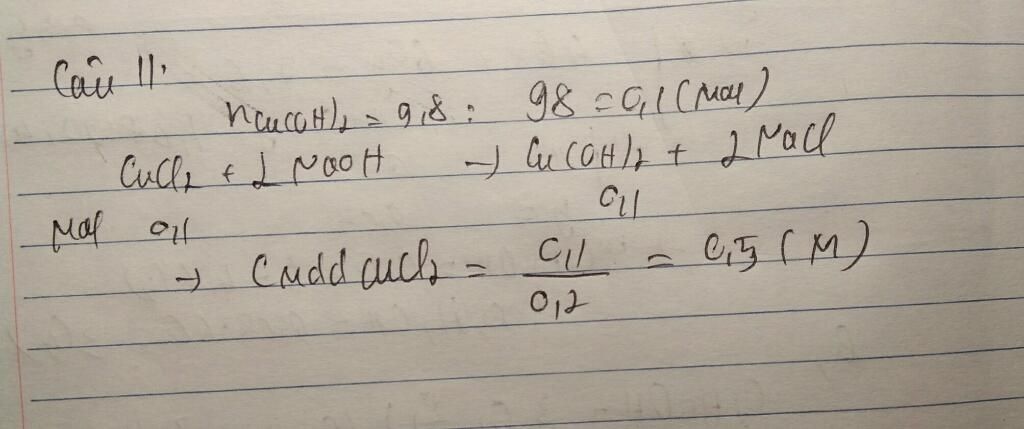 Câu 11:
nCu(OH)2 = 9,8 : 98 = 0,1 (mol)
CuCl2 + 2 NaOH → Cu(OH)2 + 2 NaCl
Mol 0,1 0,1
→ CMdd CuCl2 = 0,1 / 0,2 = 0,5 (M)